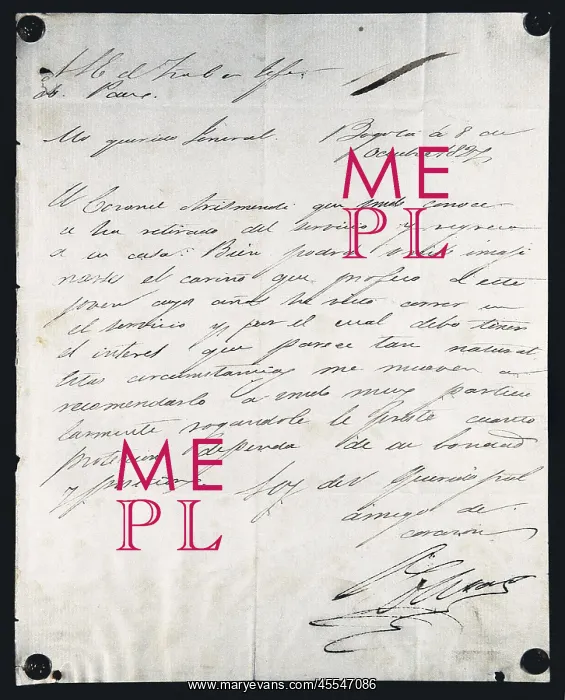 Paez.
Mi querido General. Bogotá á 8 de
Octubre 182
ME
PL
El Coronel Arismendi que vmd. conoce
se ha retirado del servicio y regresa
á su casa: Bien podrá imagi
narse el cariño que profeso á este
joven cuyos años he visto correr en
el servicio y por el cual debo tener
el interés que parece tan natural.
Estas circunstancias me mueven a
recomendarlo a vmd. muy particu
larmente rogandole le preste cuanta
proteccion dependa de su bondad
ME
PL
y Soy de V. fiel
amigo de
corazon
Bolivar
www.maryevans.com/45547086